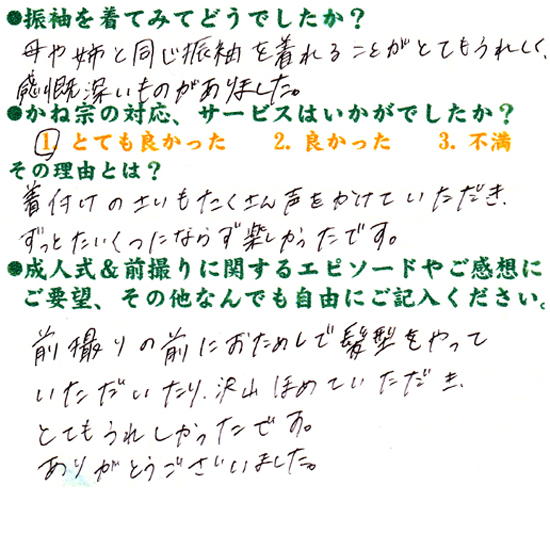 ●振袖を着てみてどうでしたか？
母や姉と同じ振袖を着れることがとてもうれしく、
感慨深いものがありました。
●かね宗の対応、サービスはいかがでしたか？
1. とても良かった 2. 良かった 3. 不満
その理由とは？
着付けのさいもたくさん声をかけていただき、
ずっとたいくつにならず楽しかったです。
●成人式＆前撮りに関するエピソードやご感想に
ご要望、その他なんでも自由にご記入ください。
前撮りの前におためしで髪型をやって
いただいたり、沢山ほめていただき、
とてもうれしかったです。
ありがとうございました。